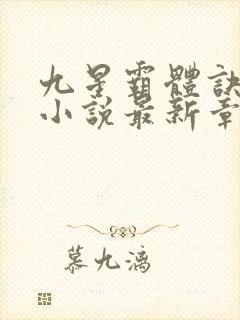 九星霸體訣
小說最新章
慕九漓